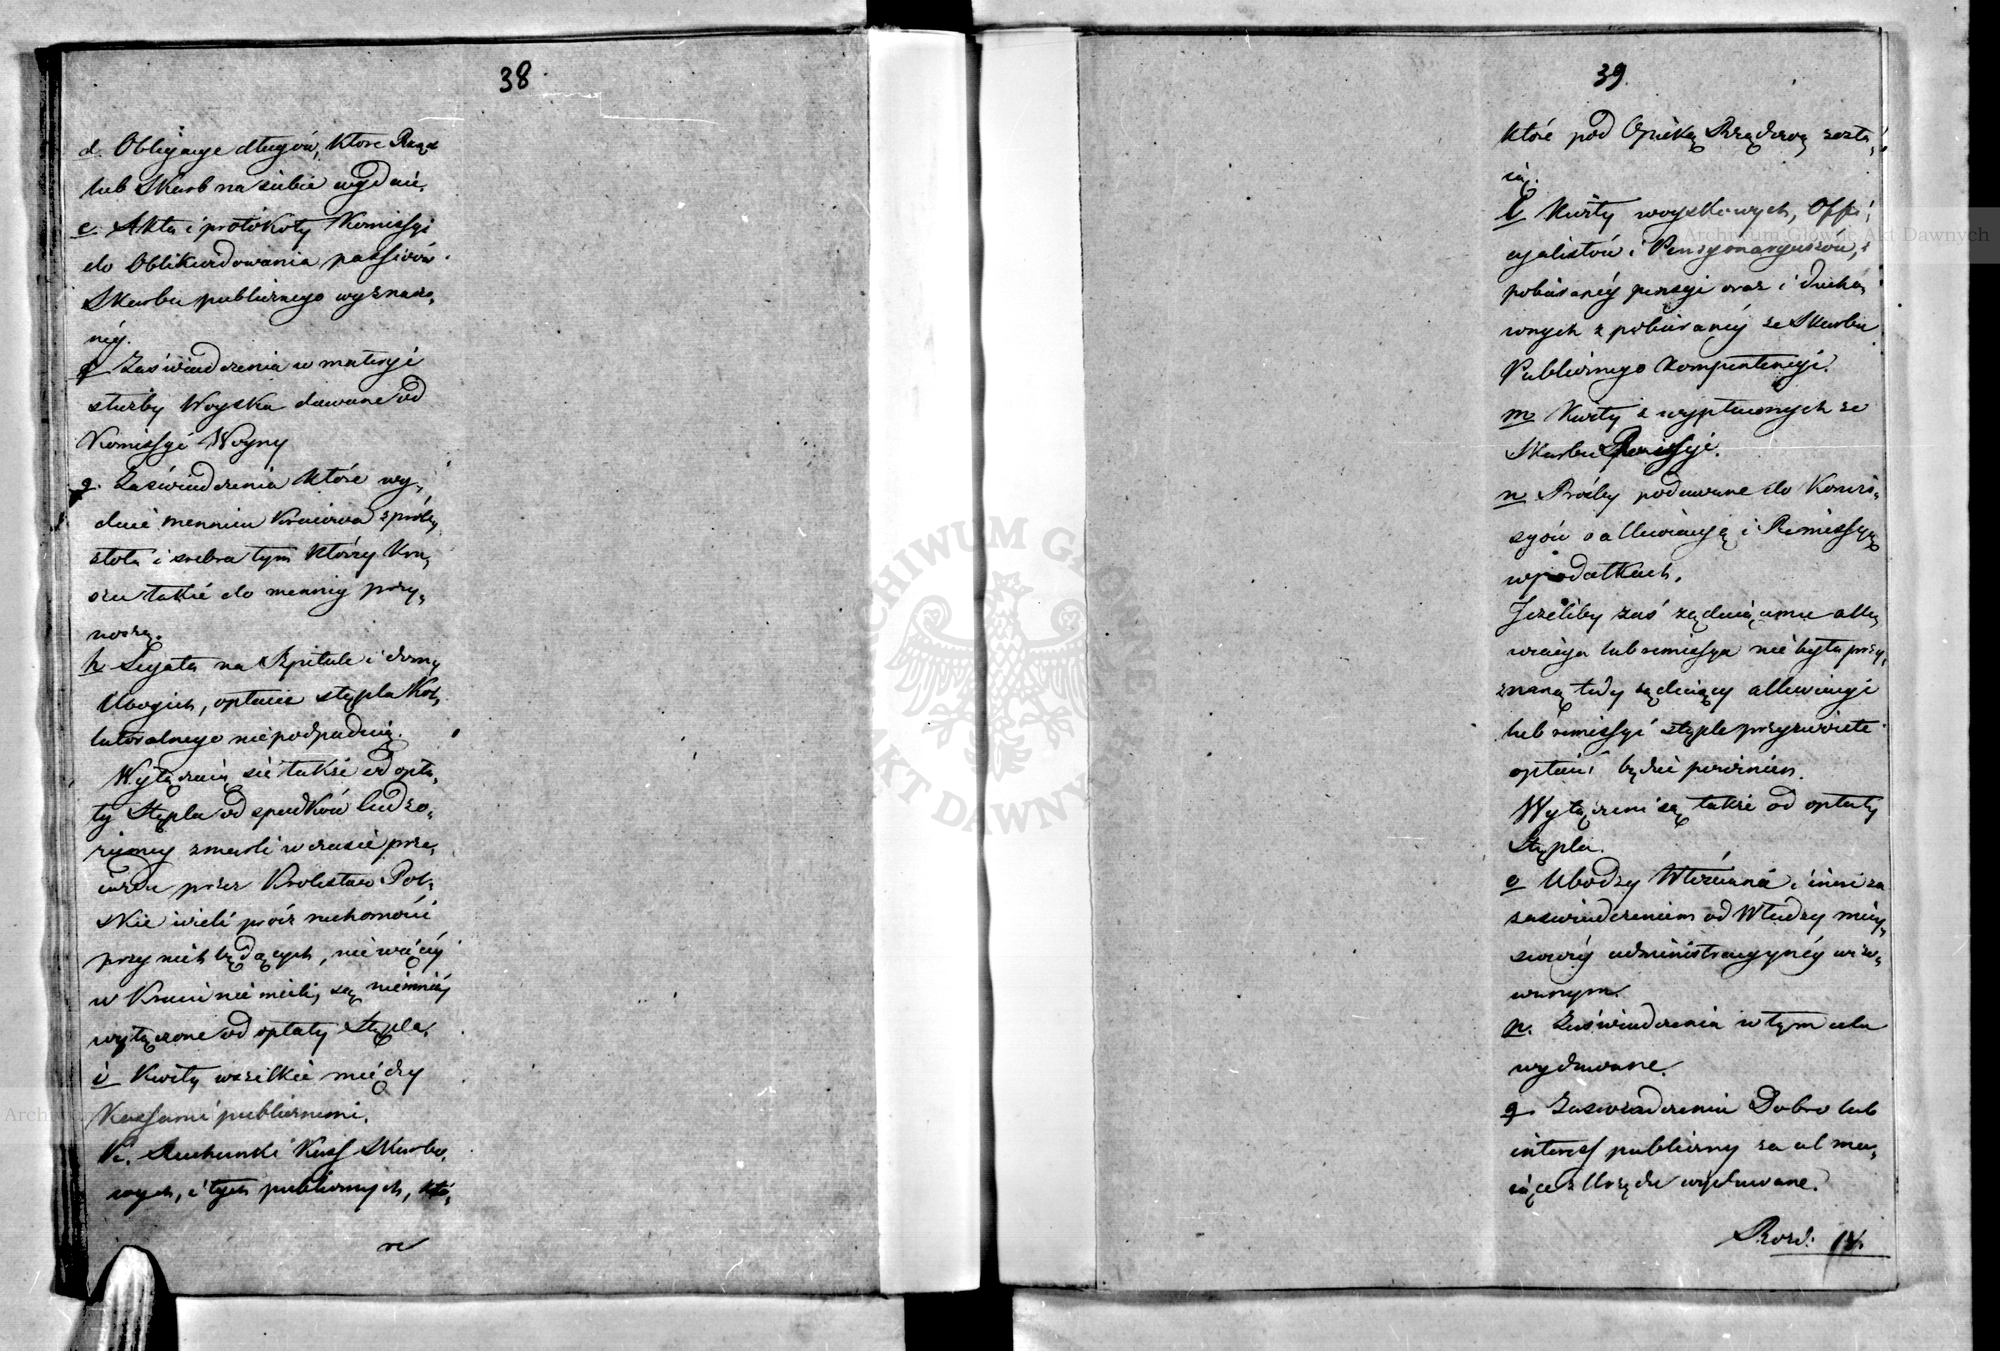 38
d. Obligacye długów, które Rząd
lub Skarb na siebie wydał.
e. Akta i protokoły Komissyi
do Oblikwidowania passivów
Skarbu publicznego wyznaczo,
néy.
f Zaświadczenia w materyi
służby Woyska dawane od
Komissyi Woyny
g. Zaświadczenia które wy,
daie mennica Kraiowa z próby
złota i srebra tym którzy Kru,
szce takie do mennicy przy,
noszą.
h Legata na Szpitale i domy
Ubogich, opłacie stępla Kol,
lateralnego niepodpadaią.
Wyłączaią się także od opła,
ty Stępla od spadków ludzi
zmarli w czasie prze,
przez Krolestwo Pol,
skie ieżeli prócz ruchomości
przy nich będących, nic więcéy
w Kraiu nie mieli, są niemniéy
wyłączone od opłaty Stępla.
i Kwity wszelkie między
Kassami publicznemi.
k. Rachunki Kass Skarbo,
wych, i tych publicznych, któ,
re
39.
które pod Opieką Rządową zosta,
ią.
l Kwity woyskowych, Offi,
cyalistów i Pensyonaryuszów, z
pobieranéy pensyi oraz i Ducho,
wnych z pobieranéy ze Skarbu
Publicznego Kompetencyi.
m Kwity z wypłaconych ze
Skarbu Remissyi.
n Prośby podawane do Kommis,
syów o allewiacyą i Remissyą
w podatkach.
Jeżeliby zaś żądaiącemu alle,
wiacya lub remissya nie była przy,
znaną tedy żądaiący allewiacyi
lub remissyi stęple przyzwoite
opłacić będzie powinien.
Wyłączeni są także od opłaty
Stępla.
o Ubodzy Włościanie i inni za
zaświadczeniem od Władzy miey,
scowéy administracyinéy
p. Zaświadczenia w tym celu
wydawane.
q. Zaświadczenia Dobro lub
interess publiczny za cel ma,
iące z Urzędu wydawane.
Rozd: IV.
Archiwum Główne Akt Dawnych
ARCHIWUM GŁÓWNE AKT DAWNYCH